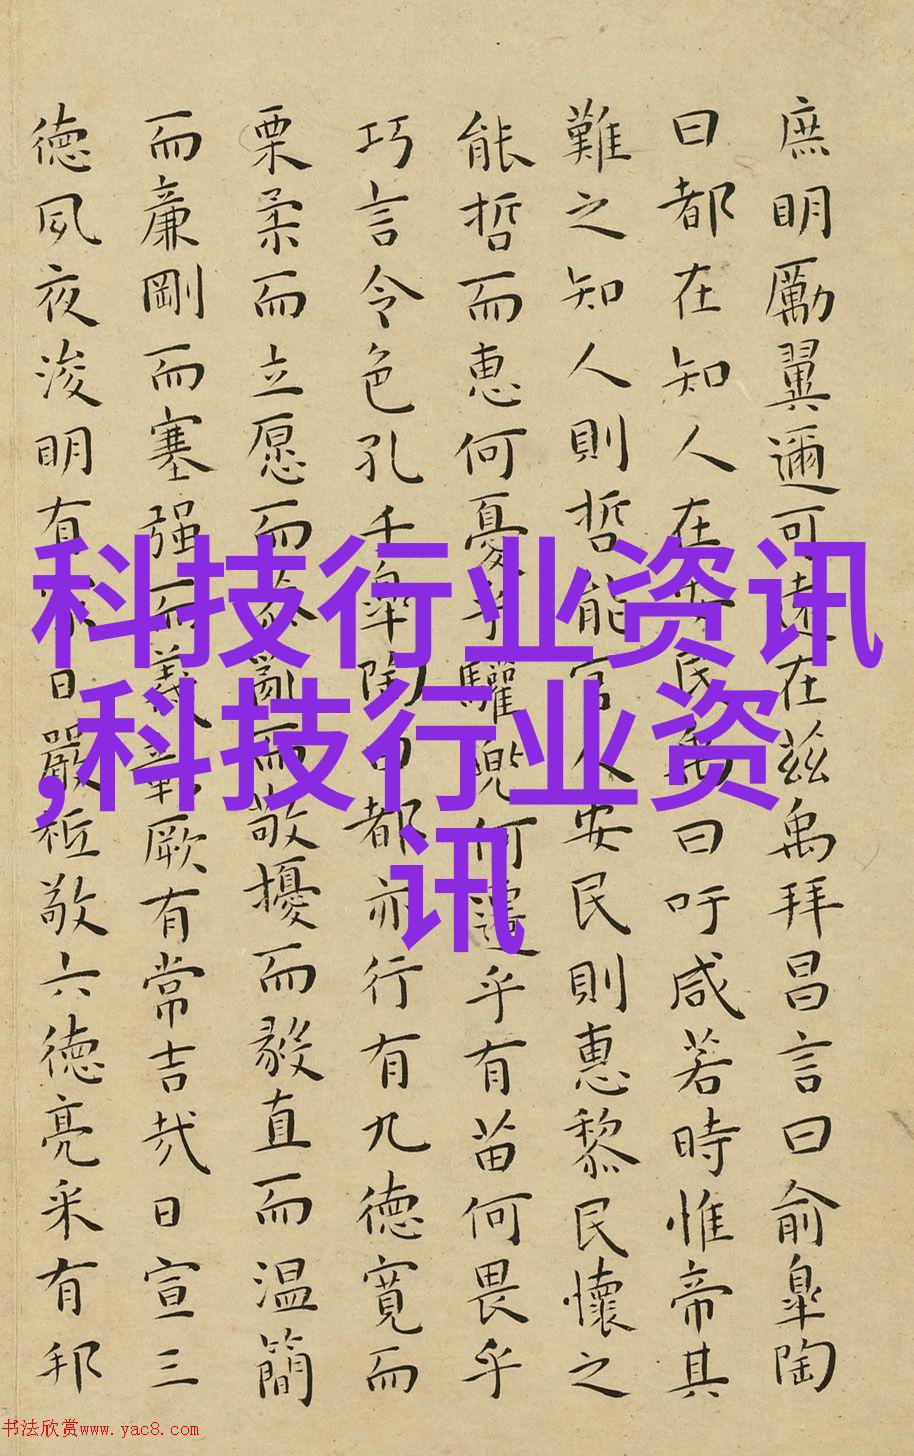 庶明厲翼邇可遠在茲禹拜昌言曰俞皐陶
曰都在知人在安民禹曰吁咸若時惟帝其
難之知人則哲能官人安民則惠黎民懷之
能哲而惠何憂乎驩兜何遷乎有苗何畏乎
巧言令色孔壬皐陶曰都亦行有九德寬而
栗柔而立愿而恭亂而敬擾而毅直而温簡
而廉剛而塞强而義彰厥有常吉哉日宣三
德夙夜浚明有家日嚴祗敬六德亮采有邦
科技行业资讯
,科技行业资
讯
书法欣赏www.yac8.com